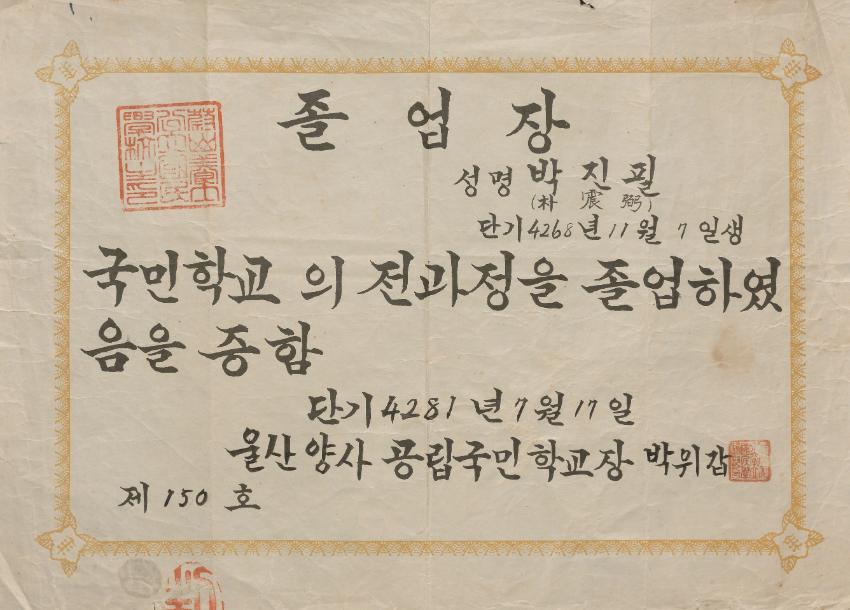 졸업장
성명 박진필
(朴震弼)
단기 4268년 11월 7일생
국민학교의 전과정을 졸업하였
음을 증함
단기 4281년 7월 17일
울산양사 공립국민학교장 박위갑
제 150 호